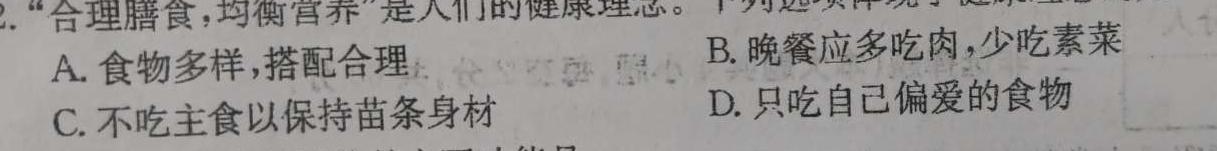 2.“合理膳食,均衡营养”是人们的健康理念。下列选项体现了健康
A. 食物多样,搭配合理
B. 晚餐应多吃肉,少吃素菜
C. 不吃主食以保持苗条身材
D. 只吃自己偏爱的食物